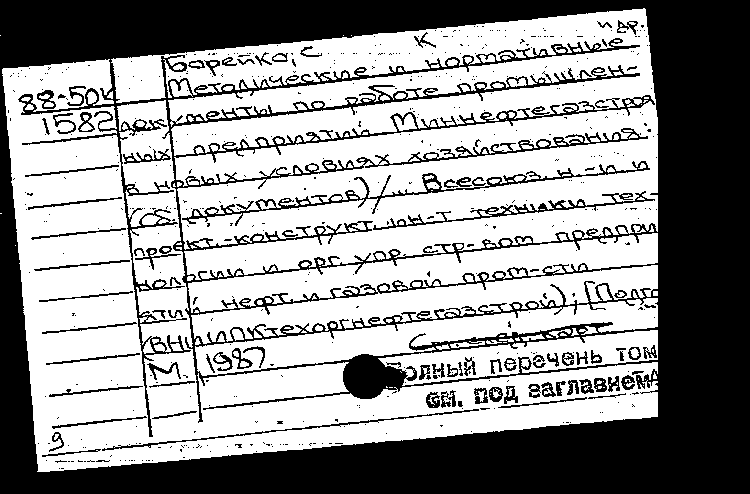 и др.
Борейко, С К
88-50к Методические и нормативные
1582 документы по работе промышлен-
ных предприятий Миннефтегазстроя
в новых условиях хозяйствования:
(Сб. документов) / ... Всесоюз. н.-и. и
проект.-конструкт. ин-т техники, тех-
нологии и орг. упр. стр-вом предпри
ятий нефт. и газовой пром-сти
(ВНИИПКтехоргнефтегазстрой); [Подго
См. след. карт
М., 1987.
Полный перечень том
см. под заглавием
9